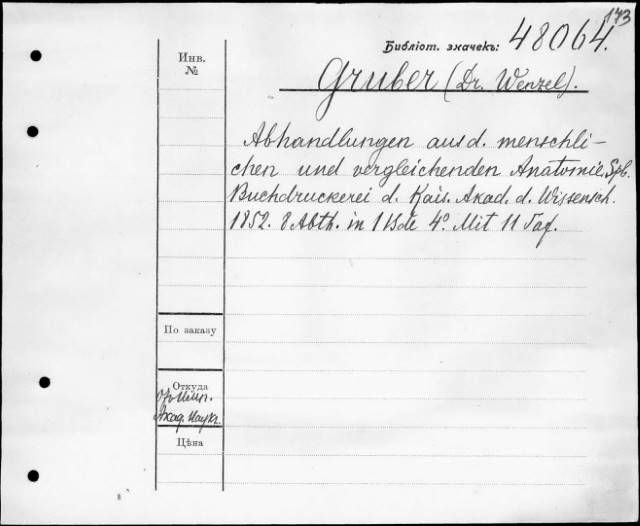 173
Библіот. значекъ: 48064.
Инв.
№
Gruber (Dr. Wenzel).
Abhandlungen aus d. menschli-
chen und vergleichenden Anatomie. Spb.
Buchdruckerei d. Kais. Akad. d. Wissensch.
1852. 8 Abth. in 1 Bde 4º. Mit 11 Taf.
По заказу
Откуда
Акад. Наукъ.
Цѣна